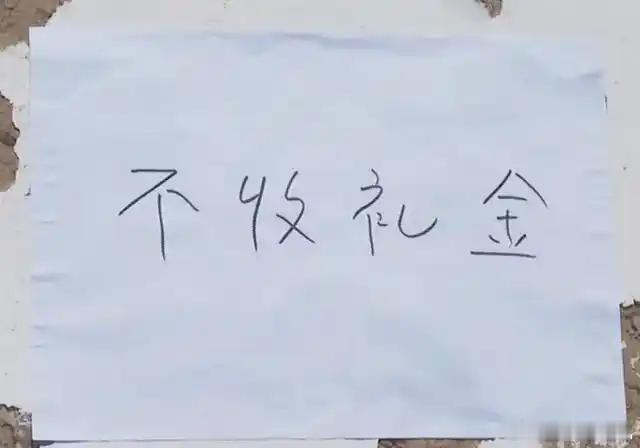 不收礼金